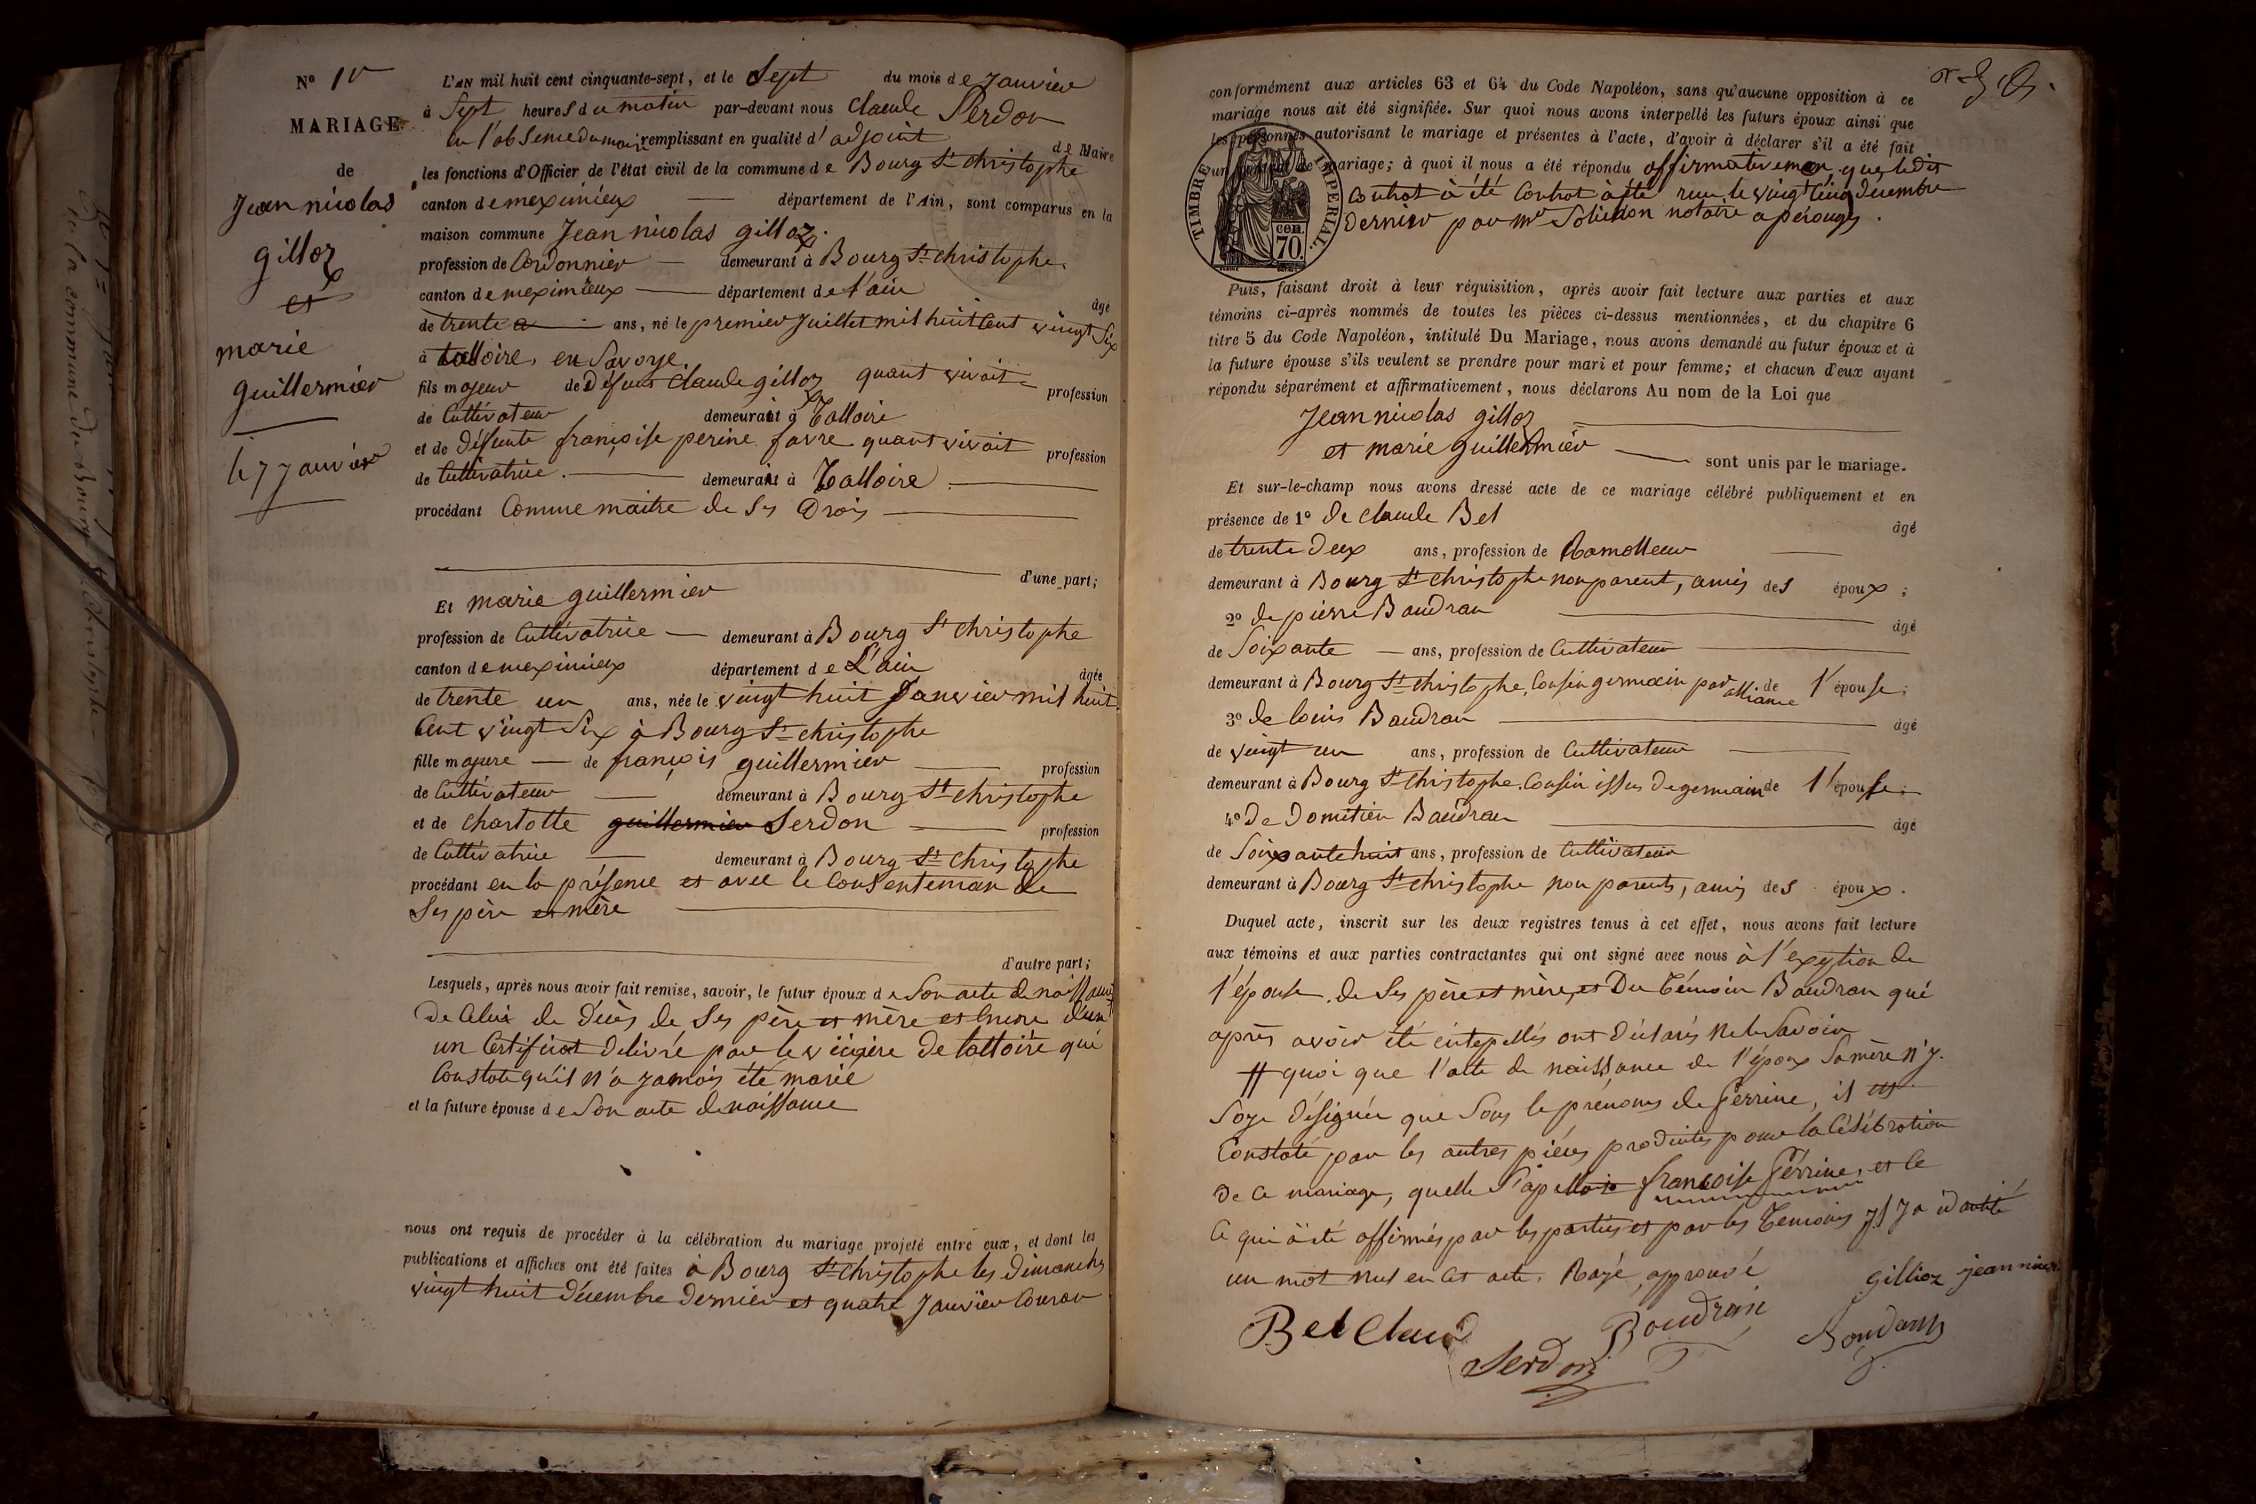 N° 1er
MARIAGE
de
Jean nicolas
gilloz
et
marie
guillermier
le 7 janvier
L'AN mil huit cent cinquante-sept, et le Sept du mois de Janvier
à Sept heures du matin par-devant nous Claude Serdon
en l'absence du maire remplissant en qualité d'adjoint de Maire
les fonctions d'Officier de l'état civil de la commune de Bourg St christophe
canton de meximieux département de l'Ain, sont comparus en la
maison commune Jean nicolas gilloz
profession de Cordonnier demeurant à Bourg St christophe
canton de meximieux département de l'ain âgé
de trente ans, né le premier Juillet mil huit Cent vingt Six
à talloire, en Savoye
fils majeur de Défunt Claude gilloz quant vivoit profession
de Cultivateur demeurait à Talloire
et de Défunte françoise perine favre quant vivoit profession
de Cultivatrice demeurait à Talloire
procédant Comme maitre de Ses Drois
d'une part;
Et marie guillermier
profession de Cultivatrice demeurant à Bourg St christophe
canton de meximieux département de L'ain âgée
de trente un ans, née le vingt huit Janvier mil huit
Cent vingt Six à Bourg St christophe
fille majeure de françois guillermier profession
de Cultivateur demeurant à Bourg St christophe
et de charlotte guillermier Serdon profession
de Cultivatrice demeurant à Bourg St christophe
procédant en la présence et avec le Consenteman de
Ses père et mère
d'autre part;
Lesquels, après nous avoir fait remise, savoir, le futur époux de Son acte de naissance
De Celui de décès de Ses père et mère et encore d'un
un Certificat Delivré par le viquère de talloire qui
Constate qu'il n'a jamais été marié
et la future épouse de Son acte de naissance
nous ont requis de procéder à la célébration du mariage projeté entre eux, et dont les
publications et affiches ont été faites à Bourg St christophe les dimanches
vingt huit décembre dernier et quatre Janvier Couran
conformément aux articles 63 et 64 du Code Napoléon, sans qu'aucune opposition à ce
mariage nous ait été signifiée. Sur quoi nous avons interpellé les futurs époux ainsi que
les personnes autorisant le mariage et présentes à l'acte, d'avoir à déclarer s'il a été fait
un contrat de mariage; à quoi il nous a été répondu affirmativemen que ledit
Contrat à été Contrat à été reçu le vingt Cinq décembre
dernier par Me Soliedon notaire a pérouges.
TIMBRE IMPERIAL
cen.
70.
Puis, faisant droit à leur réquisition, après avoir fait lecture aux parties et aux
témoins ci-après nommés de toutes les pièces ci-dessus mentionnées, et du chapitre 6
titre 5 du Code Napoléon, intitulé Du Mariage, nous avons demandé au futur époux et à
la future épouse s'ils veulent se prendre pour mari et pour femme; et chacun d'eux ayant
répondu séparément et affirmativement, nous déclarons Au nom de la Loi que
Jean nicolas gilloz
et marie guillermier sont unis par le mariage.
Et sur-le-champ nous avons dressé acte de ce mariage célébré publiquement et en
présence de 1° de claude Bel âgé
de trente Deux ans, profession de Ramolleur
demeurant à Bourg St christophe non parent, amis des époux;
2° de pierre Baudran âgé
de Soixante ans, profession de Cultivateur
demeurant à Bourg St christophe, Cousin germain par alliance de l'épouse;
3° de louis Baudran âgé
de vingt un ans, profession de Cultivateur
demeurant à Bourg St christophe Cousin issus de germain de l'épouse.
4° De Domitien Baudran âgé
de Soixante huit ans, profession de Cultivateur
demeurant à Bourg St christophe non parents, amis des époux.
Duquel acte, inscrit sur les deux registres tenus à cet effet, nous avons fait lecture
aux témoins et aux parties contractantes qui ont signé avec nous à l'exeption de
l'épouse, de Ses père et mère, et Du Témoin Baudran qui
après avoir été intepellés ont Déclarés ne le Savoir
# quoi que l'acte de naissance de l'époux Sa mère n'y
Soye désignée que Sous le prénoms de Perrine, il est
Constaté par les autres pièces produites pour la Célébration
de Ce mariage, quelle S'apelloit francoise Perrine, et le
Ce qui à été affirmés par les parties et par les Temoins
un mot nul en Cet acte. Rayé approuvé
gillioz jean nicolas
Bel Claud
Serdon
Baudran
Boudran